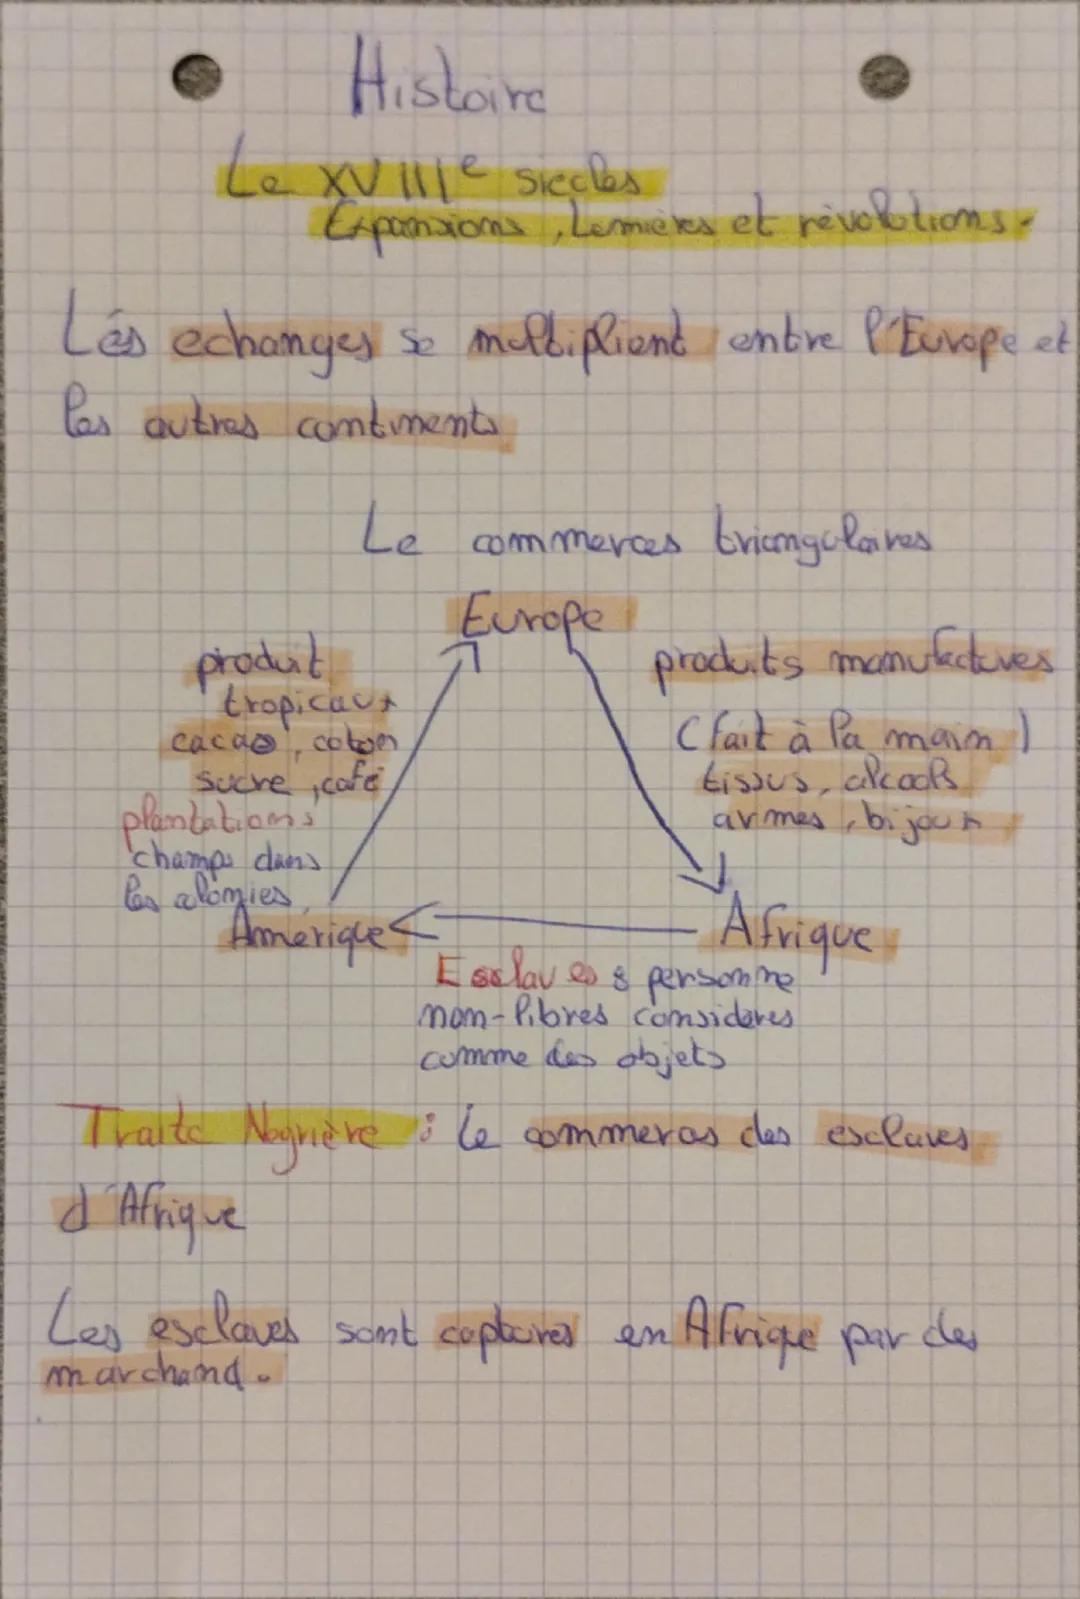 Histoire
Le XVIIIe siecles
Expansions, Lumières et révolutions.
Lés echanges se multiplient entre l'Europe et
les autres continents
Le commerces triangulaires
Europe
produit
tropicaux
cacao, coton
sucre, café
plantations
champs dans
les colonies
produits manufactures
(fait à la main)
tissus, alcools
armes, bijoux
Amerique
Afrique
Esclaves : personne
non-libres consideres
comme des objets
Traite Negrière : le commerces des esclaves
d'Afrique
Les esclaves sont captures en Afrique par des
marchand.